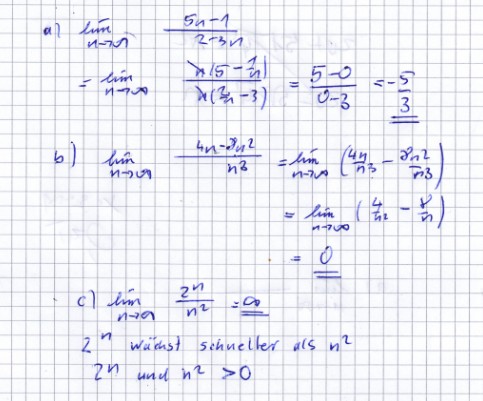 a) lim n→∞ (5n-1)/(2-3n)
= lim n→∞ n(5 - 1/n)/n(2/n - 3) = (5-0)/(0-3) = -5/3
b) lim n→∞ (4n-8n²)/n³ = lim n→∞ (4n/n³ - 8n²/n³)
= lim n→∞ (4/n² - 8/n)
= 0
c) lim n→∞ 2ⁿ/n² = ∞
2ⁿ wächst schneller als n²
2ⁿ und n² > 0